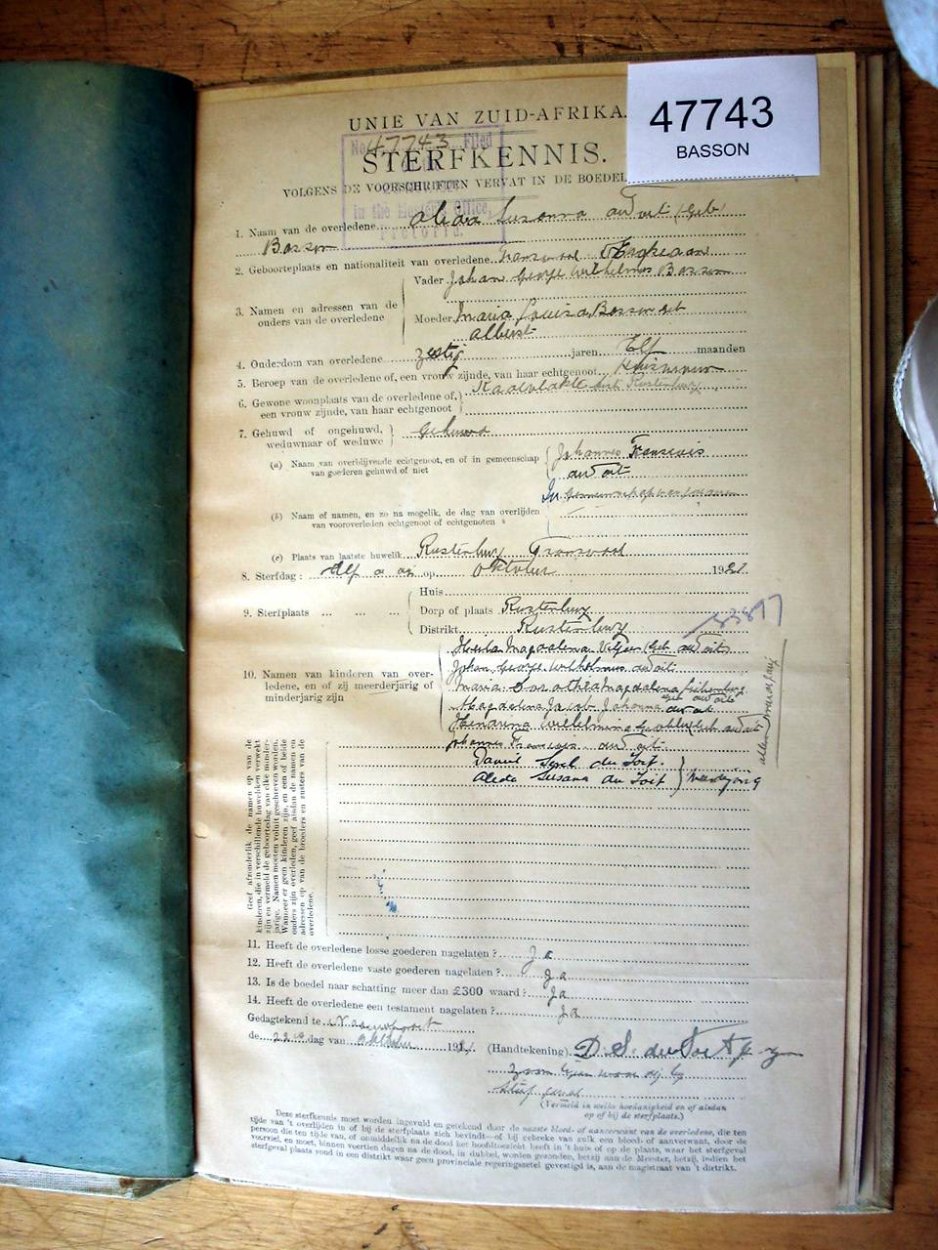 47743
BASSON
UNIE VAN ZUID-AFRIKA.
No. 47743 Filed
STERFKENNIS.
VOLGENS DE VOORSCHRIFTEN VERVAT IN DE BOEDEL
in the Master's Office,
Pretoria.
1. Naam van de overledene Alida Susanna du Toit (Geb
Basson
2. Geboorteplaats en nationaliteit van overledene Transvaal
3. Namen en adressen van de ouders van de overledene
Vader Johan George Wilhelmus Basson
Moeder Maria Louisa Basson
Albert
4. Ouderdom van overledene zestig jaren Elf maanden
5. Beroep van de overledene of, een vrouw zijnde, van haar echtgenoot Huisvrouw
6. Gewone woonplaats van de overledene of, een vrouw zijnde, van haar echtgenoot Rustenburg
7. Gehuwd of ongehuwd, weduwnaar of weduwe Gehuwd
(a) Naam van overblijvende echtgenoot, en of in gemeenschap van goederen gehuwd of niet
Johannes Francois
du Toit
In Gemeenschap van goederen
(b) Naam of namen, en zo na mogelik, de dag van overlijden van vooroverleden echtgenoot of echtgenoten
(c) Plaats van laatste huwelik Rustenburg Transvaal
8. Sterfdag: Elf op Oktober 1921
9. Sterfplaats ... ... ...
Huis
Dorp of plaats Rustenburg
Distrikt Rustenburg
10. Namen van kinderen van overledene, en of zij meerderjarig of minderjarig zijn
Magdalena (Geb du Toit)
Johan George Wilhelmus du Toit
Maria Dorothea Magdalena
Magdalena Jacoba Johanna du Toit
Wilhelmina (Geb du Toit)
Johannes Francois du Toit
Daniel du Toit
Alida Susana du Toit
Geef afzonderlik de namen op van de kinderen, die in verschillende huweliken verwekt zijn en vermeld de geboortedag van elke minderjarige. Namen moeten voluit geschreven worden. Wanneer er geen kinderen zijn, en een of beide ouders zijn overleden, geef alsdan de namen en adressen op van de broeders en zusters van de overledene.
11. Heeft de overledene losse goederen nagelaten? Ja
12. Heeft de overledene vaste goederen nagelaten? Ja
13. Is de boedel naar schatting meer dan £300 waard? Ja
14. Heeft de overledene een testament nagelaten? Ja
Gedagtekend te
de 22ste dag van Oktober 1921 (Handtekening) D. S. du Toit
(Vermeld in welke hoedanigheid en of alsdan
op of bij de sterfplaats.)
Deze sterfkennis moet worden ingevuld en getekend door de naaste bloed- of aanverwant van de overledene, die ten
tijde van 't overlijden in of bij de sterfplaats zich bevindt—of bij gebreke van zulk een bloed- of aanverwant, door de
persoon die ten tijde van, of onmiddellik na de dood het hoofdtoezicht heeft in 't huis of op de plaats, waar het sterfgeval
voorviel, en moet, binnen veertien dagen na de dood, in dubbel, worden gezonden, hetzij aan de Meester, hetzij, indien het
sterfgeval plaats vond in een distrikt waar geen provinciale regeringszetel gevestigd is, aan de magistraat van 't distrikt.